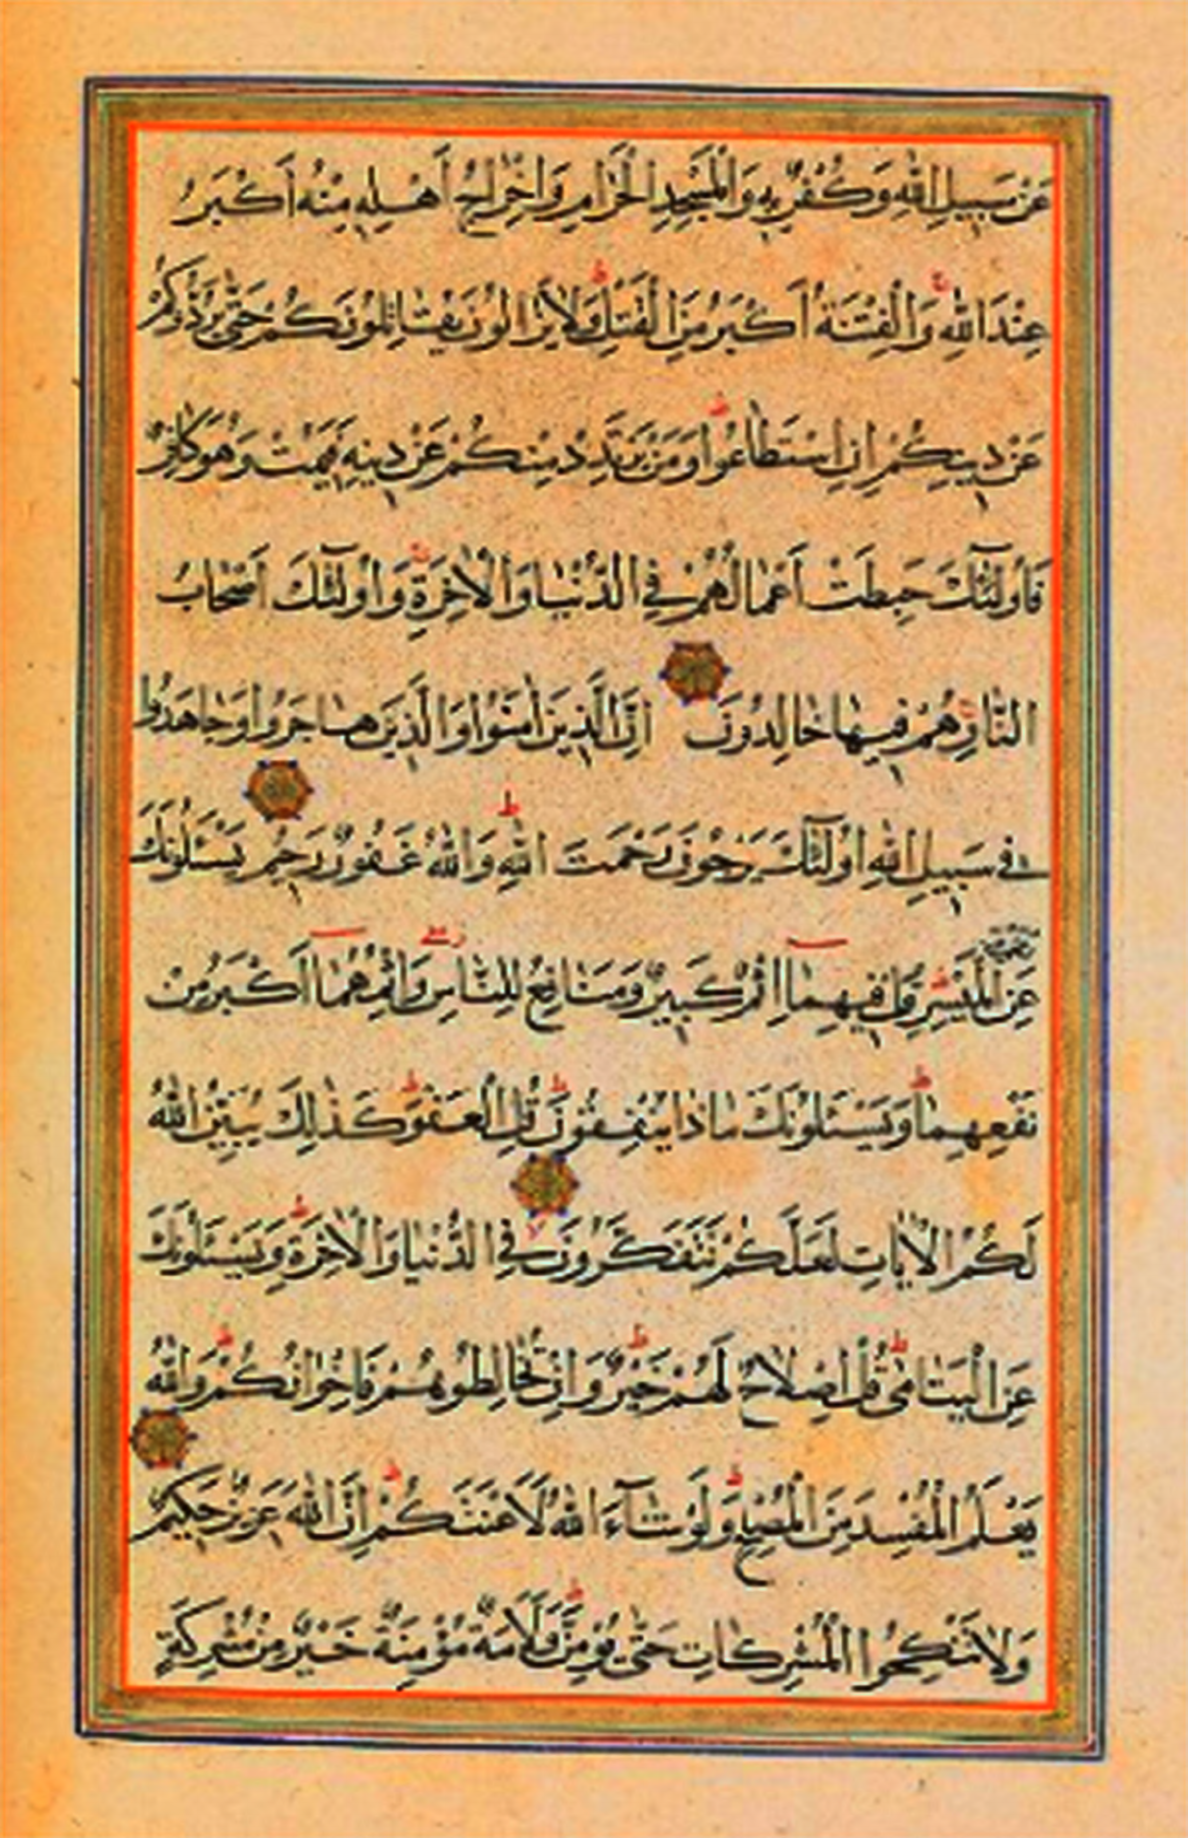 عَنْ سَبِيلِ اللّٰهِ وَكُفْرٌ بِهِ وَالْمَسْجِدِ الْحَرَامِ وَاِخْرَاجُ اَهْلِهِ مِنْهُ اَكْبَرُ
عِنْدَ اللّٰهِ وَالْفِتْنَةُ اَكْبَرُ مِنَ الْقَتْلِ وَلَا يَزَالُونَ يُقَاتِلُونَكُمْ حَتّٰى يَرُدُّوكُمْ
عَنْ دِينِكُمْ اِنِ اسْتَطَاعُوا وَمَنْ يَرْتَدِدْ مِنْكُمْ عَنْ دِينِهِ فَيَمُتْ وَهُوَ كَافِرٌ
فَاُولٰٓئِكَ حَبِطَتْ اَعْمَالُهُمْ فِي الدُّنْيَا وَالْاٰخِرَةِ وَاُولٰٓئِكَ اَصْحَابُ
النَّارِ هُمْ فِيهَا خَالِدُونَ اِنَّ الَّذِينَ اٰمَنُوا وَالَّذِينَ هَاجَرُوا وَجَاهَدُوا
فِي سَبِيلِ اللّٰهِ اُولٰٓئِكَ يَرْجُونَ رَحْمَتَ اللّٰهِ وَاللّٰهُ غَفُورٌ رَحِيمٌ يَسْئَلُونَكَ
عَنِ الْمَيْسِرِ قُلْ فِيهِمَٓا اِثْمٌ كَبِيرٌ وَمَنَافِعُ لِلنَّاسِ وَاِثْمُهُمَٓا اَكْبَرُ مِنْ
نَفْعِهِمَا وَيَسْئَلُونَكَ مَاذَا يُنْفِقُونَ قُلِ الْعَفْوَ كَذٰلِكَ يُبَيِّنُ اللّٰهُ
لَكُمُ الْاٰيَاتِ لَعَلَّكُمْ تَتَفَكَّرُونَ فِي الدُّنْيَا وَالْاٰخِرَةِ وَيَسْئَلُونَكَ
عَنِ الْيَتَامٰى قُلْ اِصْلَاحٌ لَهُمْ خَيْرٌ وَاِنْ تُخَالِطُوهُمْ فَاِخْوَانُكُمْ وَاللّٰهُ
يَعْلَمُ الْمُفْسِدَ مِنَ الْمُصْلِحِ وَلَوْ شَٓاءَ اللّٰهُ لَاَعْنَتَكُمْ اِنَّ اللّٰهَ عَزِيزٌ حَكِيمٌ
وَلَا تَنْكِحُوا الْمُشْرِكَاتِ حَتّٰى يُؤْمِنَّ وَلَاَمَةٌ مُؤْمِنَةٌ خَيْرٌ مِنْ مُشْرِكَةٍ